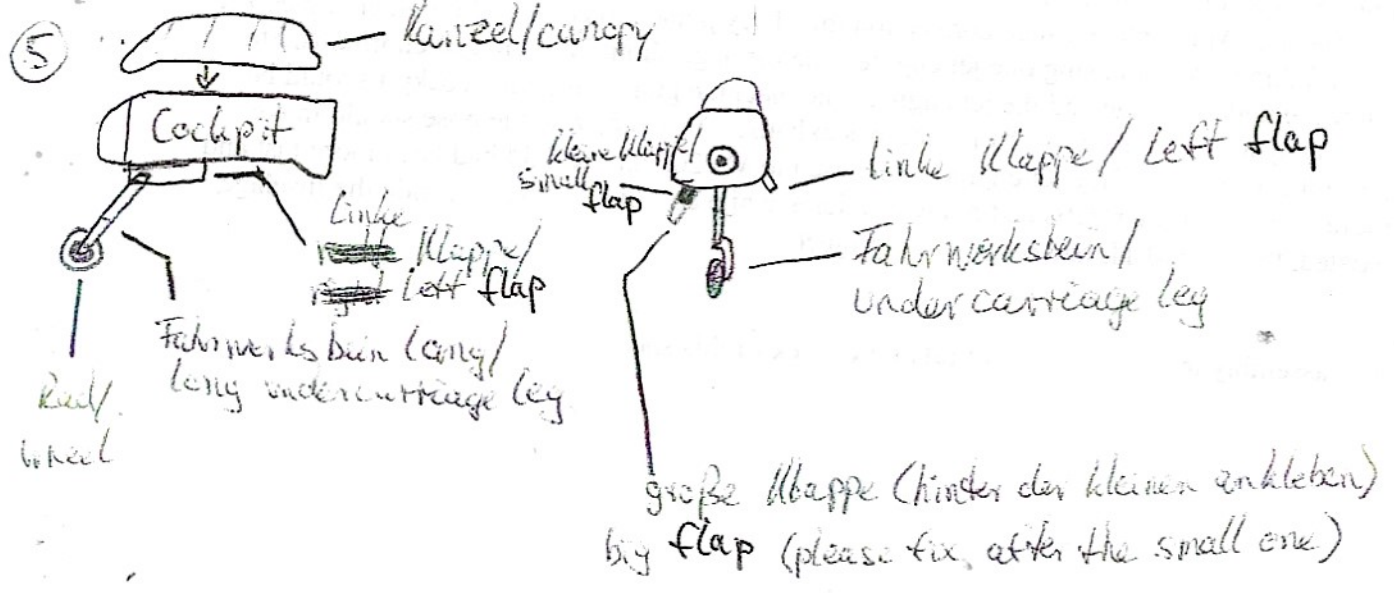 5
Kanzel/canopy
Cockpit
Linke
Klappe/
Left flap
Fahrwerksbein lang/
long undercarriage leg
Rad/
wheel
kleine Klappe/
small
flap
Linke Klappe/ Left flap
Fahrwerksbein/
undercarriage leg
große Klappe (hinter der kleinen ankleben)
big flap (please fix after the small one)